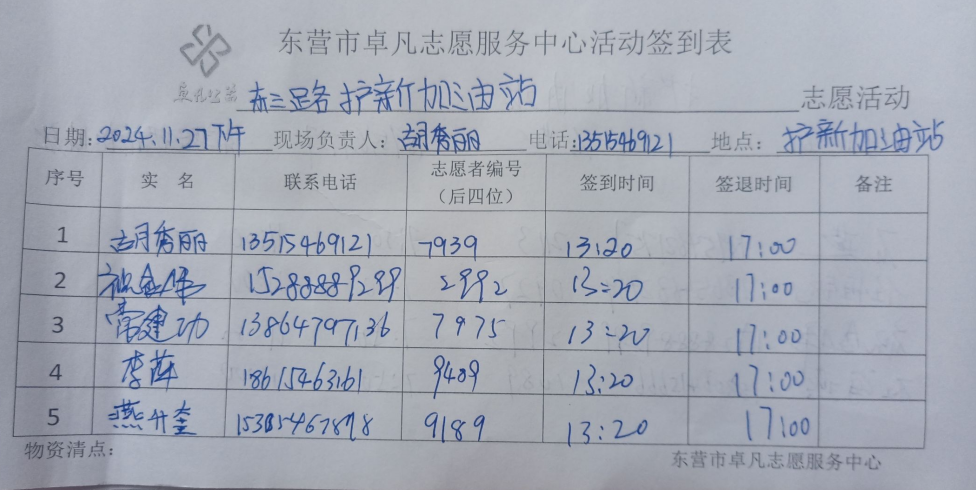 东营市卓凡志愿服务中心活动签到表
卓凡公益 东三路 护新加油站 志愿活动
日期: 2024.11.27下午 现场负责人: 胡秀丽 电话:13515469121 地点: 护新加油站
序号 实 名 联系电话 志愿者编号（后四位） 签到时间 签退时间 备注
1 胡秀丽 13515469121 7939 13:20 17:00
2 15288889299 2992 13:20 17:00
3 常建功 13864797136 7975 13:20 17:00
4 李萍 18615463161 9409 13:20 17:00
5 燕升奎 15315467898 9189 13:20 17:00
物资清点:
东营市卓凡志愿服务中心